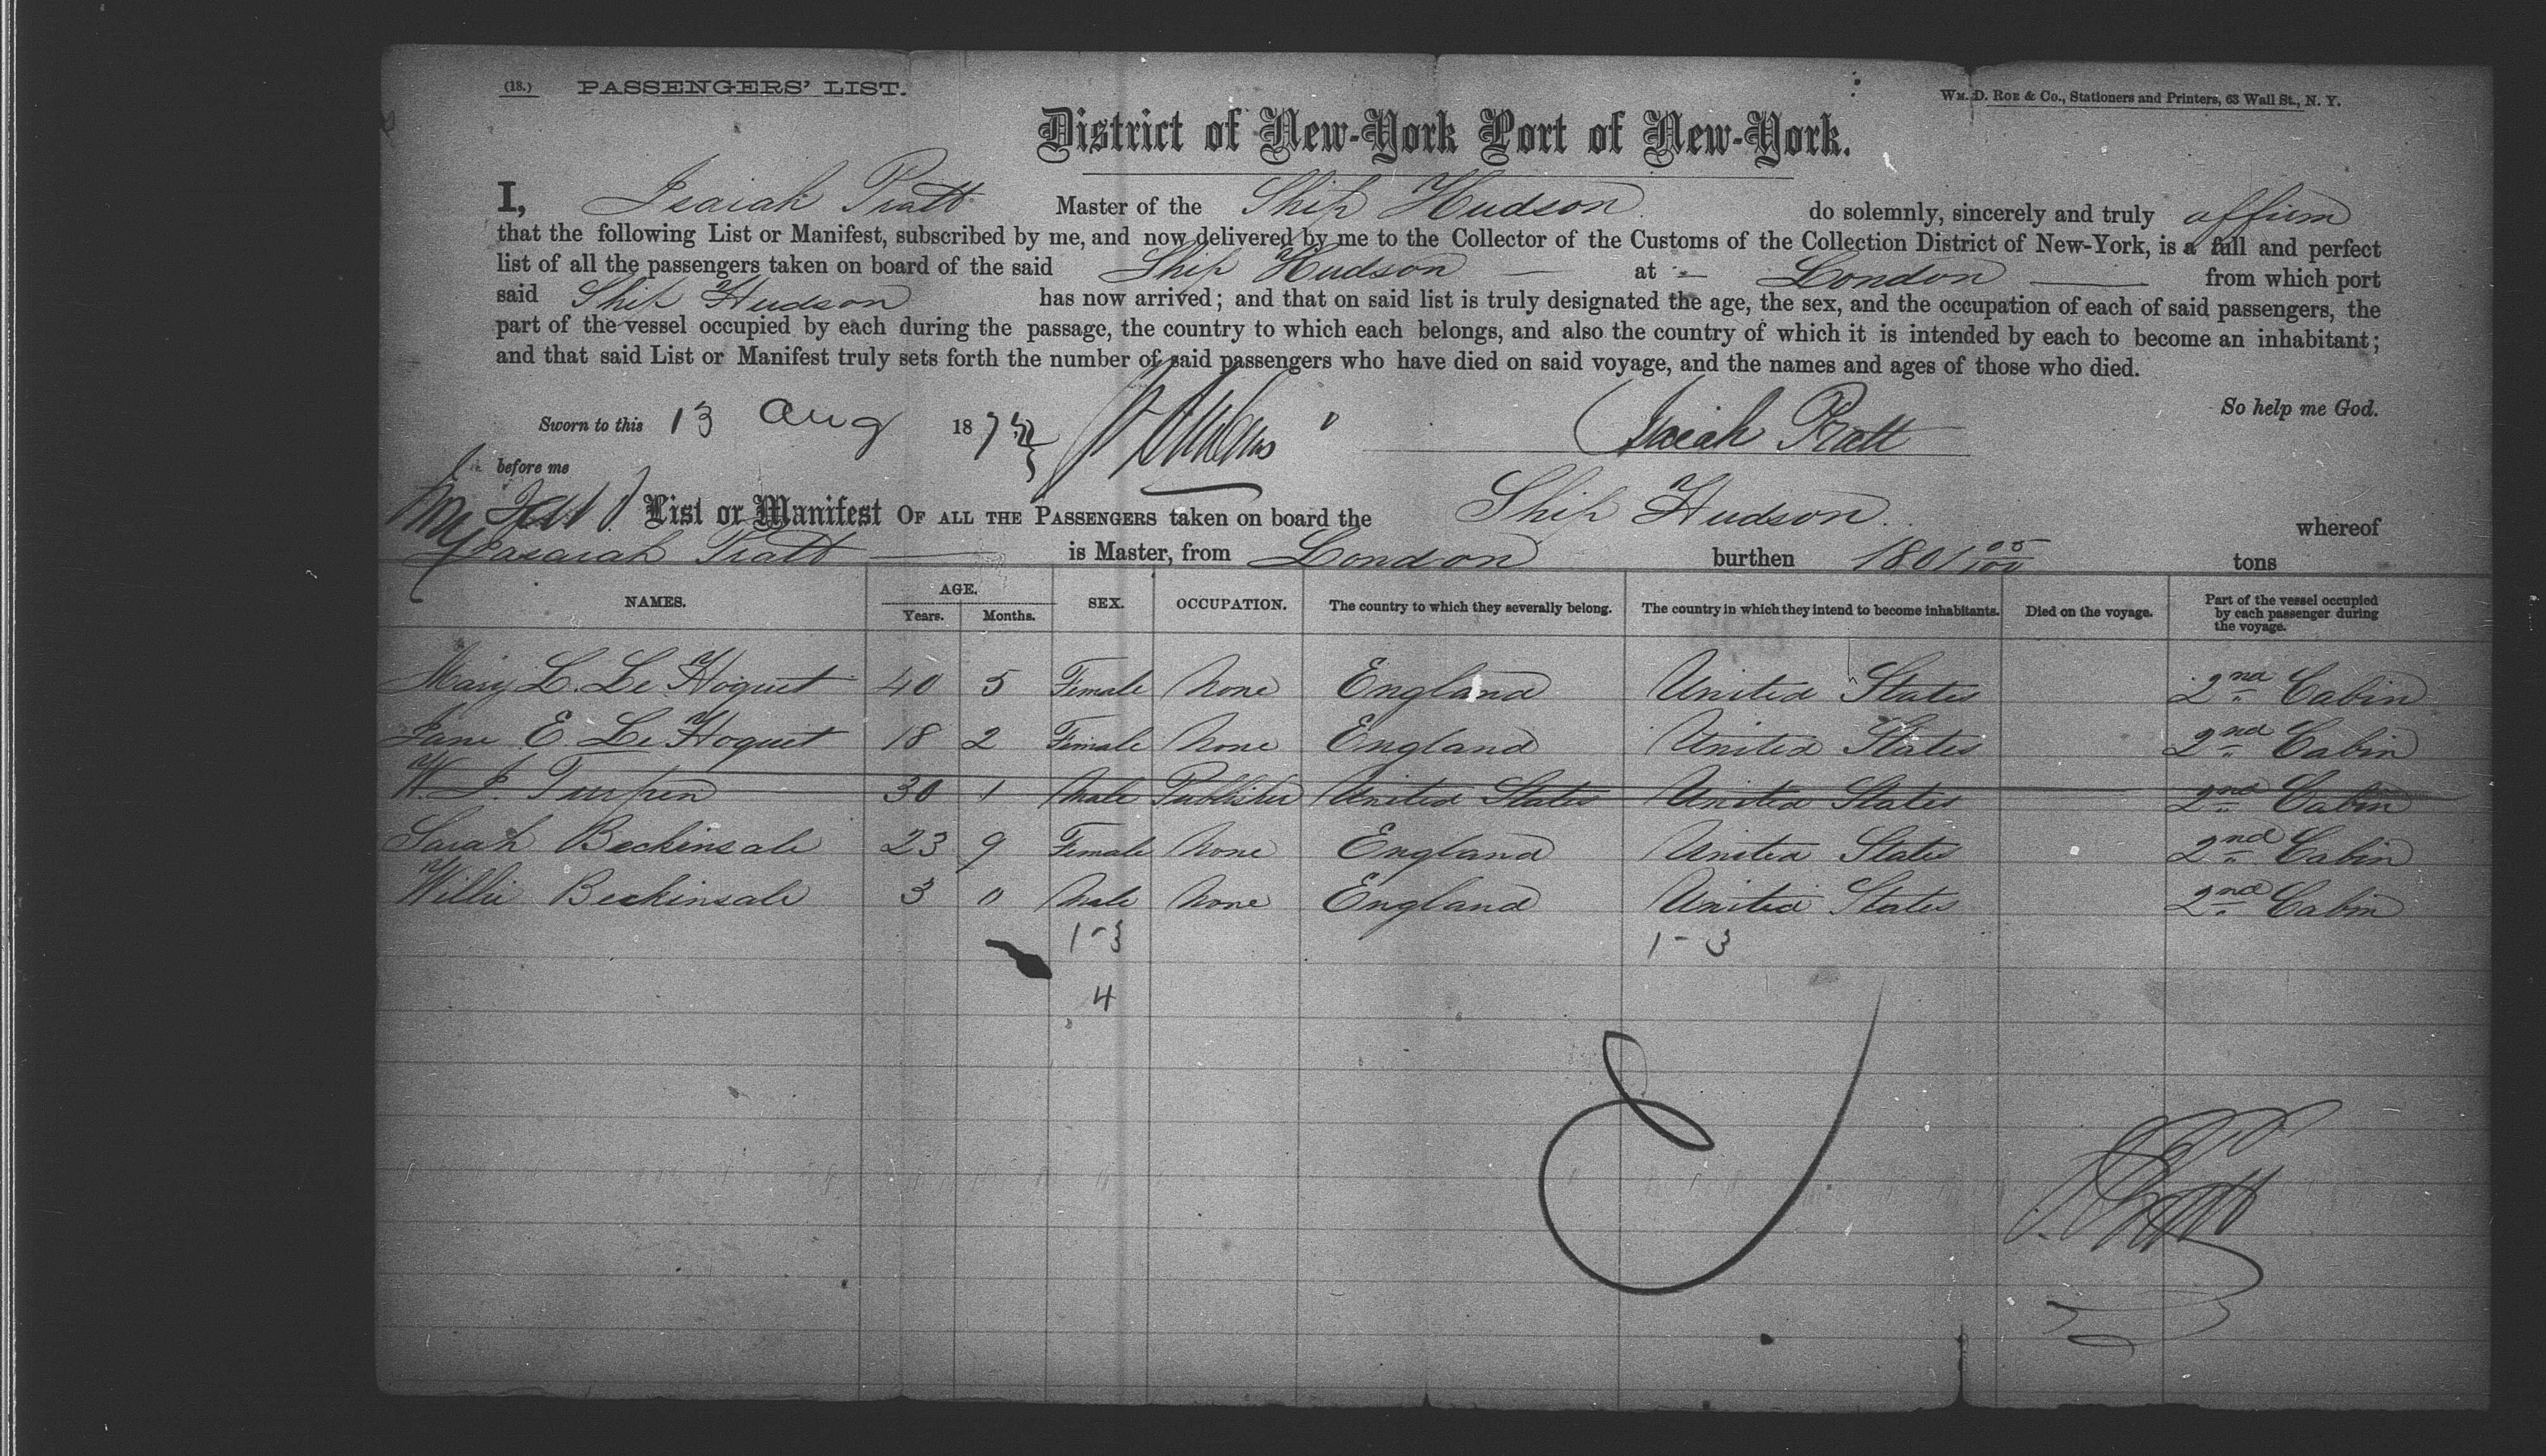 (18.) PASSENGERS' LIST.
WM. D. ROE & Co., Stationers and Printers, 63 Wall St., N. Y.
District of New-York Port of New-York.
I, Isaiah Pratt Master of the Ship Hudson do solemnly, sincerely and truly affirm
that the following List or Manifest, subscribed by me, and now delivered by me to the Collector of the Customs of the Collection District of New-York, is a full and perfect
list of all the passengers taken on board of the said Ship Hudson — at — London — from which port
said Ship Hudson has now arrived; and that on said list is truly designated the age, the sex, and the occupation of each of said passengers, the
part of the vessel occupied by each during the passage, the country to which each belongs, and also the country of which it is intended by each to become an inhabitant;
and that said List or Manifest truly sets forth the number of said passengers who have died on said voyage, and the names and ages of those who died.
So help me God.
Sworn to this 13 Aug 187
Isaiah Pratt
before me
List or Manifest OF ALL THE PASSENGERS taken on board the Ship Hudson. whereof
Isasaiah Pratt — is Master, from London burthen 1801 05/100 tons
NAMES. AGE. Years. Months. SEX. OCCUPATION. The country to which they severally belong. The country in which they intend to become inhabitants. Died on the voyage. Part of the vessel occupied by each passenger during the voyage.
Mary L. Le Hoquet 40 5 Female None England United States 2nd Cabin
Jane E. Le Hoquet 18 2 Female None England United States 2nd Cabin
W. J. Turpen 30 1 Male Publisher United States United States 2nd Cabin
Sarah Beckinsale 23 9 Female None England United States 2nd Cabin
Willie Beckinsale 3 0 Male None England United States 2nd Cabin
1-3 1-3
4